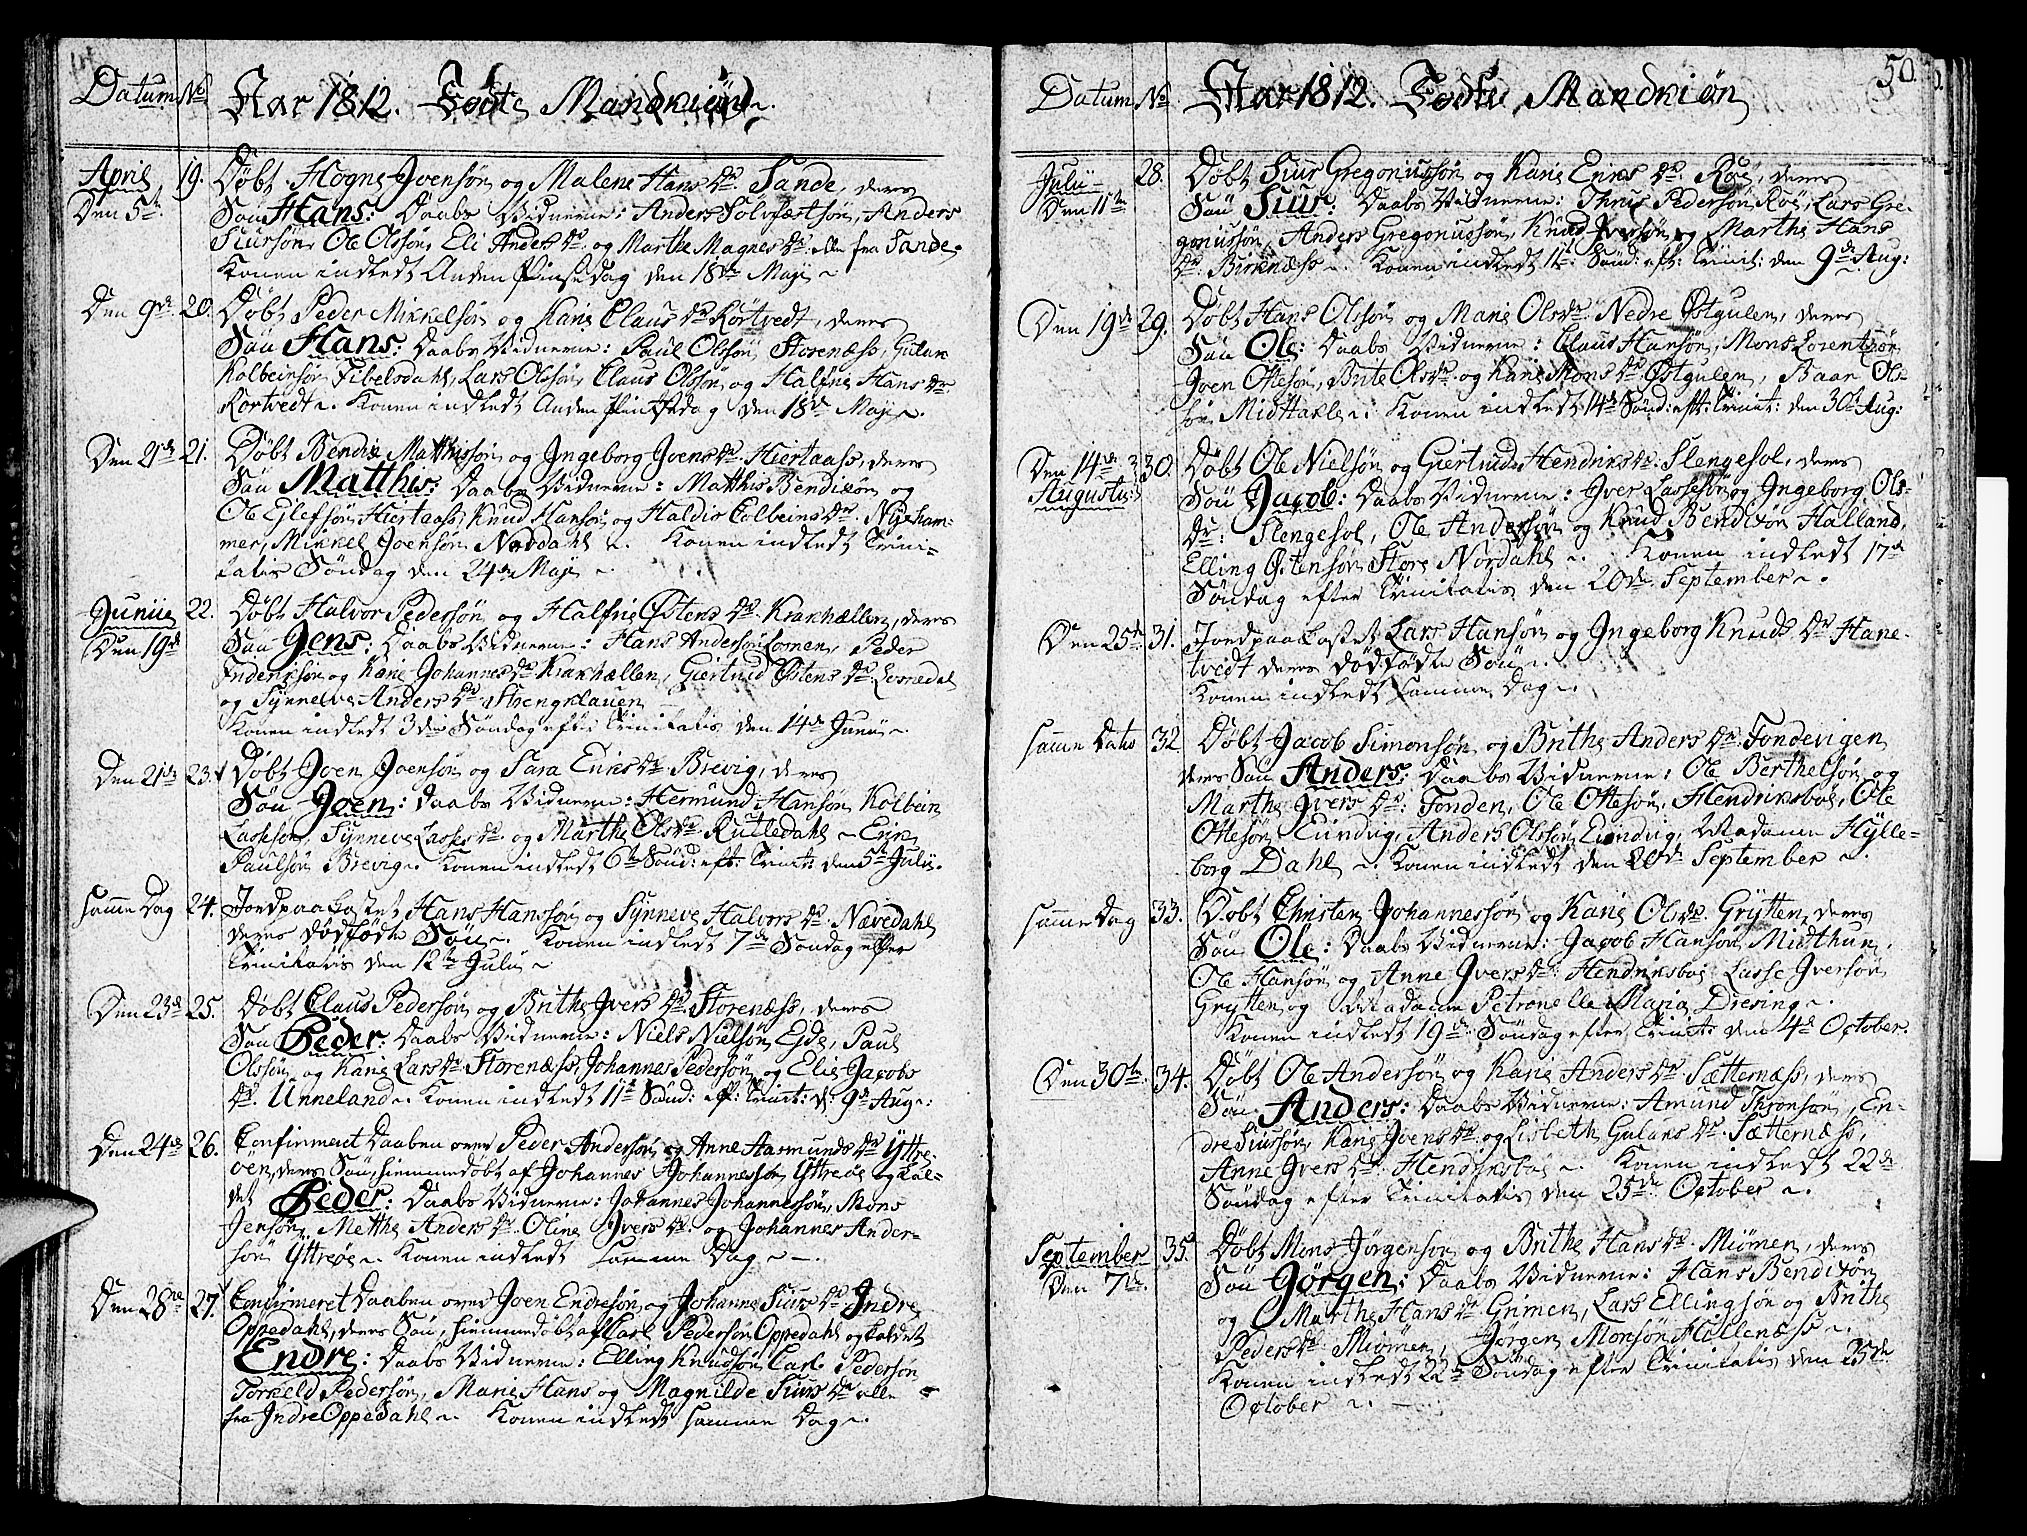 Datum No Aar 1812. Fødte Mandkiøn.
April 19. Døbt Hogne Joensøn og Malene Hans Dr. Sande, deres
Den 5te Søn Hans: Daabs Vidnerne: Anders Solvfæstsøn, Anders
Siursøn, Ole Olsøn, Eli Anders Dr. og Marthe Magnes Dr. alle fra Sande.
Konen indledt Anden Pinsedag den 18de Maji
Den 9de 20. Døbt Peder Mikkelsøn og Karie Claus Dr. Kortvedt, deres
Søn Hans: Daabs Vidnerne: Paul Olssøn Storenæss, Gulan
Kolbeinsøn Fibelsdahl, Lars Olssøn, Claus Olssøn og Halfrie Hans Dr.
Kortvedt. Konen indledt Anden Pintsedag den 18de Maji
Den 21de 21. Døbt Bendix Matthissøn og Ingeborg Joens Dr. Hiertaass, deres
Søn Matthis: Daabs Vidnerne: Matthis Bendixøn og
Ole Elefsøn Hiertaass, Knud Hansøn og Haldis Colbeins Dr. Nyeham-
mer, Mikkel Joensøn Noddahl. Konen indledt Trini-
tatis Søndag den 24de Maji
Junii 22. Døbt Halvor Pedersøn og Halfrie Østens Dr. Krakhællen, deres
Den 19de Søn Jens: Daabs Vidnerne: Hans Andersøn Lomen, Peder
Inderiksøn og Karie Johannes Dr. Krakhællen, Giertrud Østens Dr. Lernedal
og Synneve Anders Dr. Strengklauen
Konen indledt 3die Søndag eft: Trinitatis den 14de Junii
Den 21de 23. Døbt Joen Joensøn og Sara Eriks Dr. Brevig, deres
Søn Joen: Daabs Vidnerne: Hermund Hansøn, Kolbein
Lassesøn, Synneve Lasses Dr. og Marthe Ols Dr. Rutledahl, Erik
Paulsøn Brevig. Konen indledt 6te Sønd: eft: Trinit: den 5te Julii.
samme Dag 24. Jordpaakastet Hans Hanssøn og Synneve Halvors Dr. Nævedahl
deres dødfødte Søn. Konen indledt 7de Søndag efter
Trinitatis den 12te Julii
Den 23de 25. Døbt Claus Pedersøn og Brithe Ivers Dr. Storenæss, deres
Søn Peder: Daabs Vidnerne: Niels Nielsøn Ejde, Paul
Olssøn og Karie Lars Dr. Storenæss, Johannes Pedersøn og Elie Jacobs
Dr. Unneland. Konen indledt 11te Sønd: eft: Trinit: d: 9de Aug:
Den 24de 26. Confirmeret Daaben over Peder Andersøn og Anne Aasmunds Dr. Yttre-
øen, deres Søn, hiemmedøbt af Johannes Johannessøn Yttreøe og kal-
det Peder: Daabs Vidnerne: Johannes Johannessøn, Mons
Jensøn, Metthe Anders Dr. Oline Ivers Dr. og Johannes Ander-
søn Yttreøe. Konen indledt samme Dag.
Den 28de 27. Confirmeret Daaben over Joen Endresøn og Johanne Siurs Dr. Indre
Oppedahl, deres Søn, hiemmedøbt af Carl Pedersøn Oppedahl og kaldet
Endre: Daabs Vidnerne: Elling Knudsøn, Carl Pedersøn
Torkeld Pedersøn, Marie Hans og Magnilde Siurs Dr. alle
fra Indre Oppedahl. Konen indledt samme Dag.
50.
Datum No Aar 1812. Fødte Mandkiøn
Julii 28. Døbt Siur Gregoriussøn og Karie Eriks Dr. Røe, deres
Den 11te Søn Siur: Daabs Vidnerne: Thrus Pedersøn Røe, Lars Gre-
goriussøn, Anders Gregoriussøn, Knud Iversøn og Marthe Hans
Dr. Birknæss. Konen indledt 11te Sønd: eft: Trinit: den 9de Aug:
Den 19de 29. Døbt Hans Olssøn og Marie Ols Dr. Nedre Østgulen, deres
Søn Ole: Daabs Vidnerne: Claus Hansøn, Mons Lorentzøn
Joen Ottesøn, Brite Ols Dr. og Karie Mons Dr. Østgulen, Baar Ols-
søn Midttakle. Konen indledt 14de Sønd: eft: Trinit: den 30te Aug:
Den 14de 30. Døbt Ole Nielsøn og Giertrud Hendriks Dr. Slengesol, deres
Augustii Søn Jacob: Daabs Vidnerne: Iver Lassesøn og Ingeborg Ols-
Dr: Slengesol, Ole Andersøn og Knud Bendixøn Halland,
Elling Østensøn Store Nordahl. Konen indledt 17de
Søndag efter Trinitatis den 20de September.
Den 25te 31. Jordpaakastet Lars Hansøn og Ingeborg Knuds Dr. Hane-
tvedt deres dødfødte Søn.
Konen indledt samme Dag.
samme Dato 32 Døbt Jacob Simonsøn og Brithe Anders Dr. Fondevigen
deres Søn Anders: Daabs Vidnerne: Ole Berthelsøn og
Marthe Ivers Dr: Fonden, Ole Ottesøn, Hendriksboe, Ole
Ottesøn Eundvig, Anders Olssøn Eundvig, Madame Hylle-
borg Dahl. Konen indledt den 20de September.
samme Dag 33. Døbt Christen Johannessøn og Karie Ols Dr. Grytten, deres
Søn Ole: Daabs Vidnerne: Jacob Hansøn Midthun,
Ole Hansøn og Anne Ivers Dr: Hendriksboe, Lasse Iversøn
Grytten og Madame Petronelle Maria Dresing.
Konen indledt 19de Søndag efter Trinit: den 4de October.
Den 30te 34. Døbt Ole Andersøn og Karie Anders Dr. Sætternæss, deres
Søn Anders: Daabs Vidnerne: Amund Thronsøn, En-
dre Siursøn, Karie Joens Dr. og Lisbeth Gulaks Dr. Sætternæss,
Anne Ivers Dr. Hendriksboe. Konen indledt 22de
Søndag efter Trinitatis den 25de October.
September 35. Døbt Mons Jørgensøn og Brithe Hans Dr. Miømen, deres
Den 7de. Søn Jørgen: Daabs Vidnerne: Hans Bendixøn
og Marthe Hans Dr. Grimen, Lars Ellingsøn og Brithe
Peders Dr. Miømen, Jørgen Monsøn Hollenæss.
Konen indledt 22de Søndag efter Trinitatis den 25de
October.